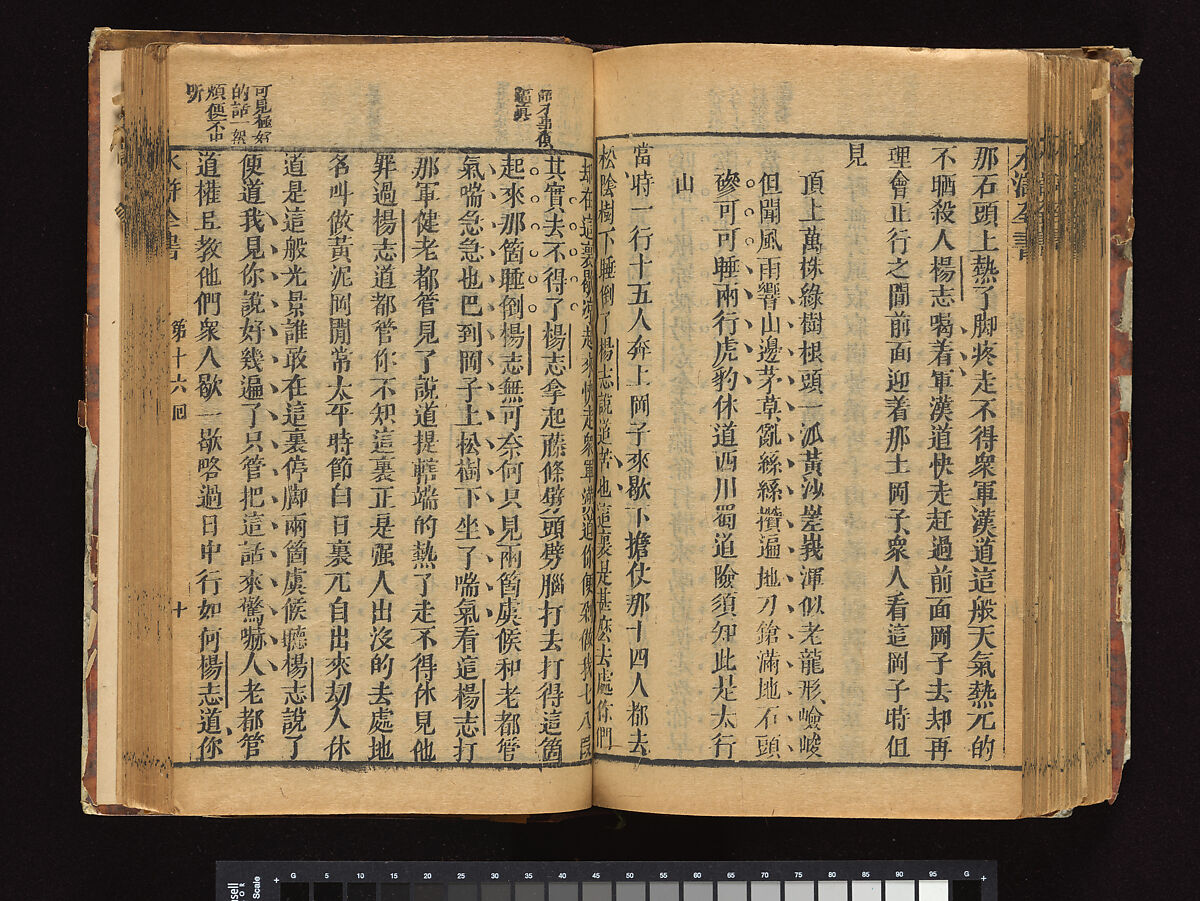 那石頭上熱了脚疼走不得衆軍漢道這般天氣熱兀的
不晒殺人楊志喝着軍漢道快走赶過前面岡子去却再
理會正行之間前面迎着那土岡子衆人看這岡子時但
見
頂上萬株綠樹根頭一派黃沙嵯峩渾似老龍形嶮峻
但聞風雨響山邊茅草亂絲絲攢遍地刀鎗滿地石頭
磣可可睡兩行虎豹休道西川蜀道險須知此是太行
山
當時一行十五人奔上岡子來歇下擔仗那十四人都去
松陰樹下睡倒了楊志說道苦也這裏是甚麽去處你們
却在這裏歇凉起來快走衆軍漢道你便剁做我七八段
其實去不得了楊志拿起藤條劈頭劈腦打去打得這箇
起來那箇睡倒楊志無可奈何只見兩箇虞候和老都管
氣喘急急也巴到岡子上松樹下坐了喘氣看這楊志打
那軍健老都管見了說道提轄端的熱了走不得休見他
罪過楊志道都管你不知這裏正是强人出沒的去處地
名叫做黃泥岡閒常太平時節白日裏兀自出來刼人休
道是這般光景誰敢在這裏停脚兩箇虞候聽楊志說了
便道我見你說好幾遍了只管把這話來驚嚇人老都管
道權且教他們衆人歇一歇略過日中行如何楊志道你
可見極好
的話一絮
煩便不中
听
水滸全書
第十六回
十
水滸全書